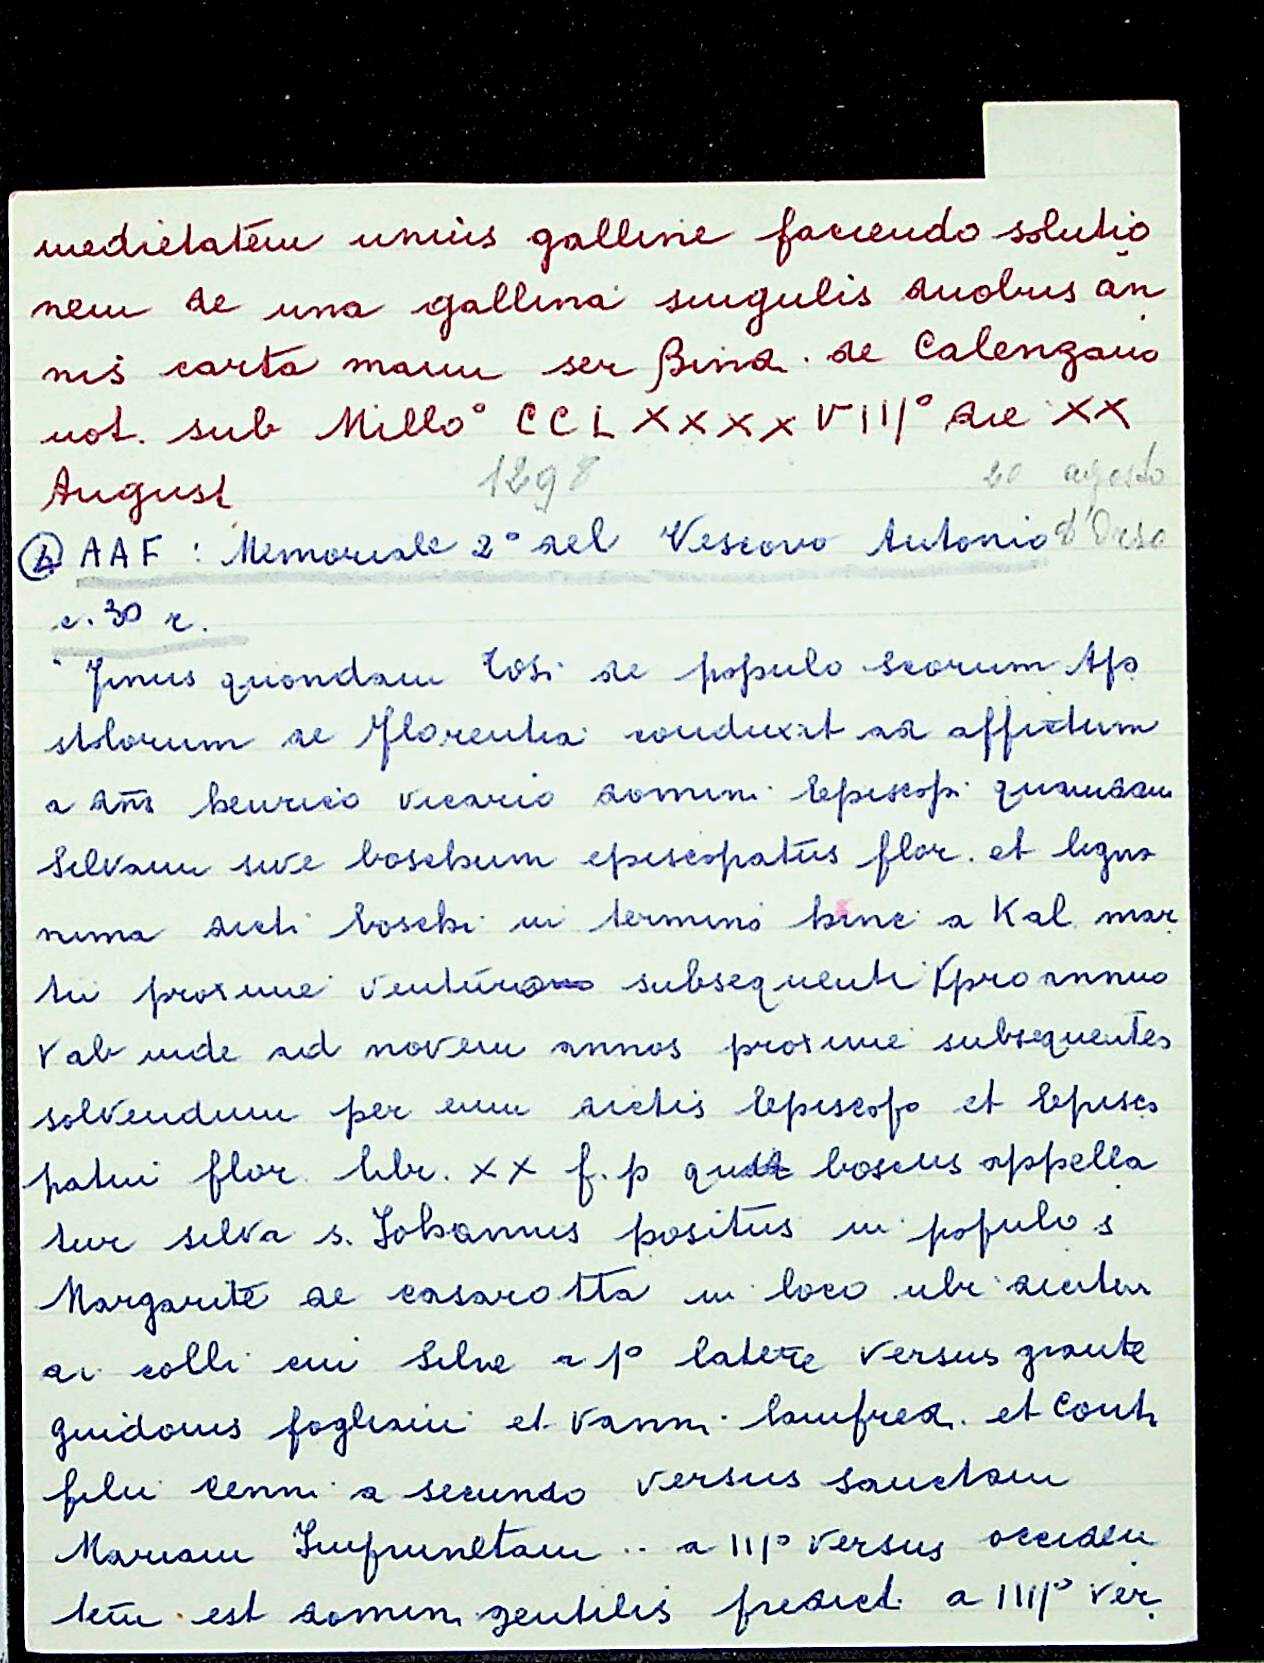 medietatem unius galline faciendo solutio
nem de una gallina singulis duobus an
nis carta manu ser Bind. de Calenzano
not. sub Millo° CCLXXXXVIII° die XX
August
1298 20 agosto
④ AAF : Memoriale 2° del Vescovo Antonio d'Orso
c. 30 r.
"Jinus quondam Cosi de populo scorum Apo
stolorum de Florentia conduxit ad affictum
a dño henrico vicario domini Episcopi quamdam
Silvam sive boschum episcopatus flor. et ligna
mina dicti boschi in termino hinc a Kal. mar
tii proxime venturo subsequenti pro annuo
ab inde ad novem annos proxime subsequentes
solvendum per eum dictis Episcopo et Episco
patui flor. libr. XX f.p boscus appella
tur silva s. Johannis positus in populo s
Margarite de casarotta in loco ubi dicitur
ai colli cui Silve a p° latere versus
guidonis fogliani et vanni lamfred. et Conti
filii Cenni a secundo versus sanctam
Mariam Imprunetam .. a III° versus occiden
tem est domini gentilis predict. a IIII° ver